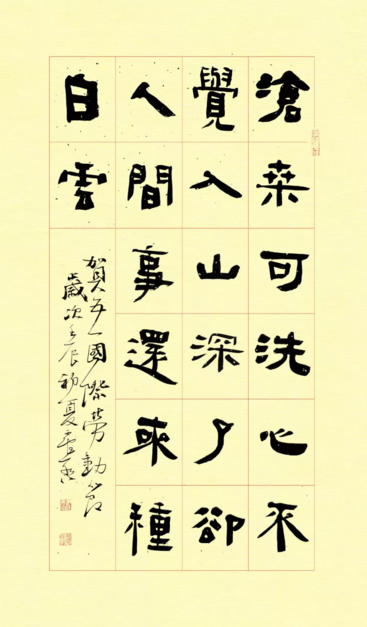 滄桒可洗心不
覺入山深了卻
人間事還來種
白雲
賀五一國際勞動節
歲次壬辰初夏